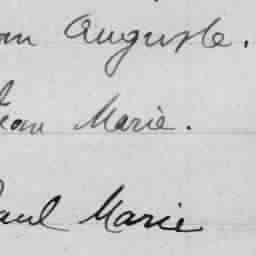 Auguste.
Jean Marie.
Paul Marie